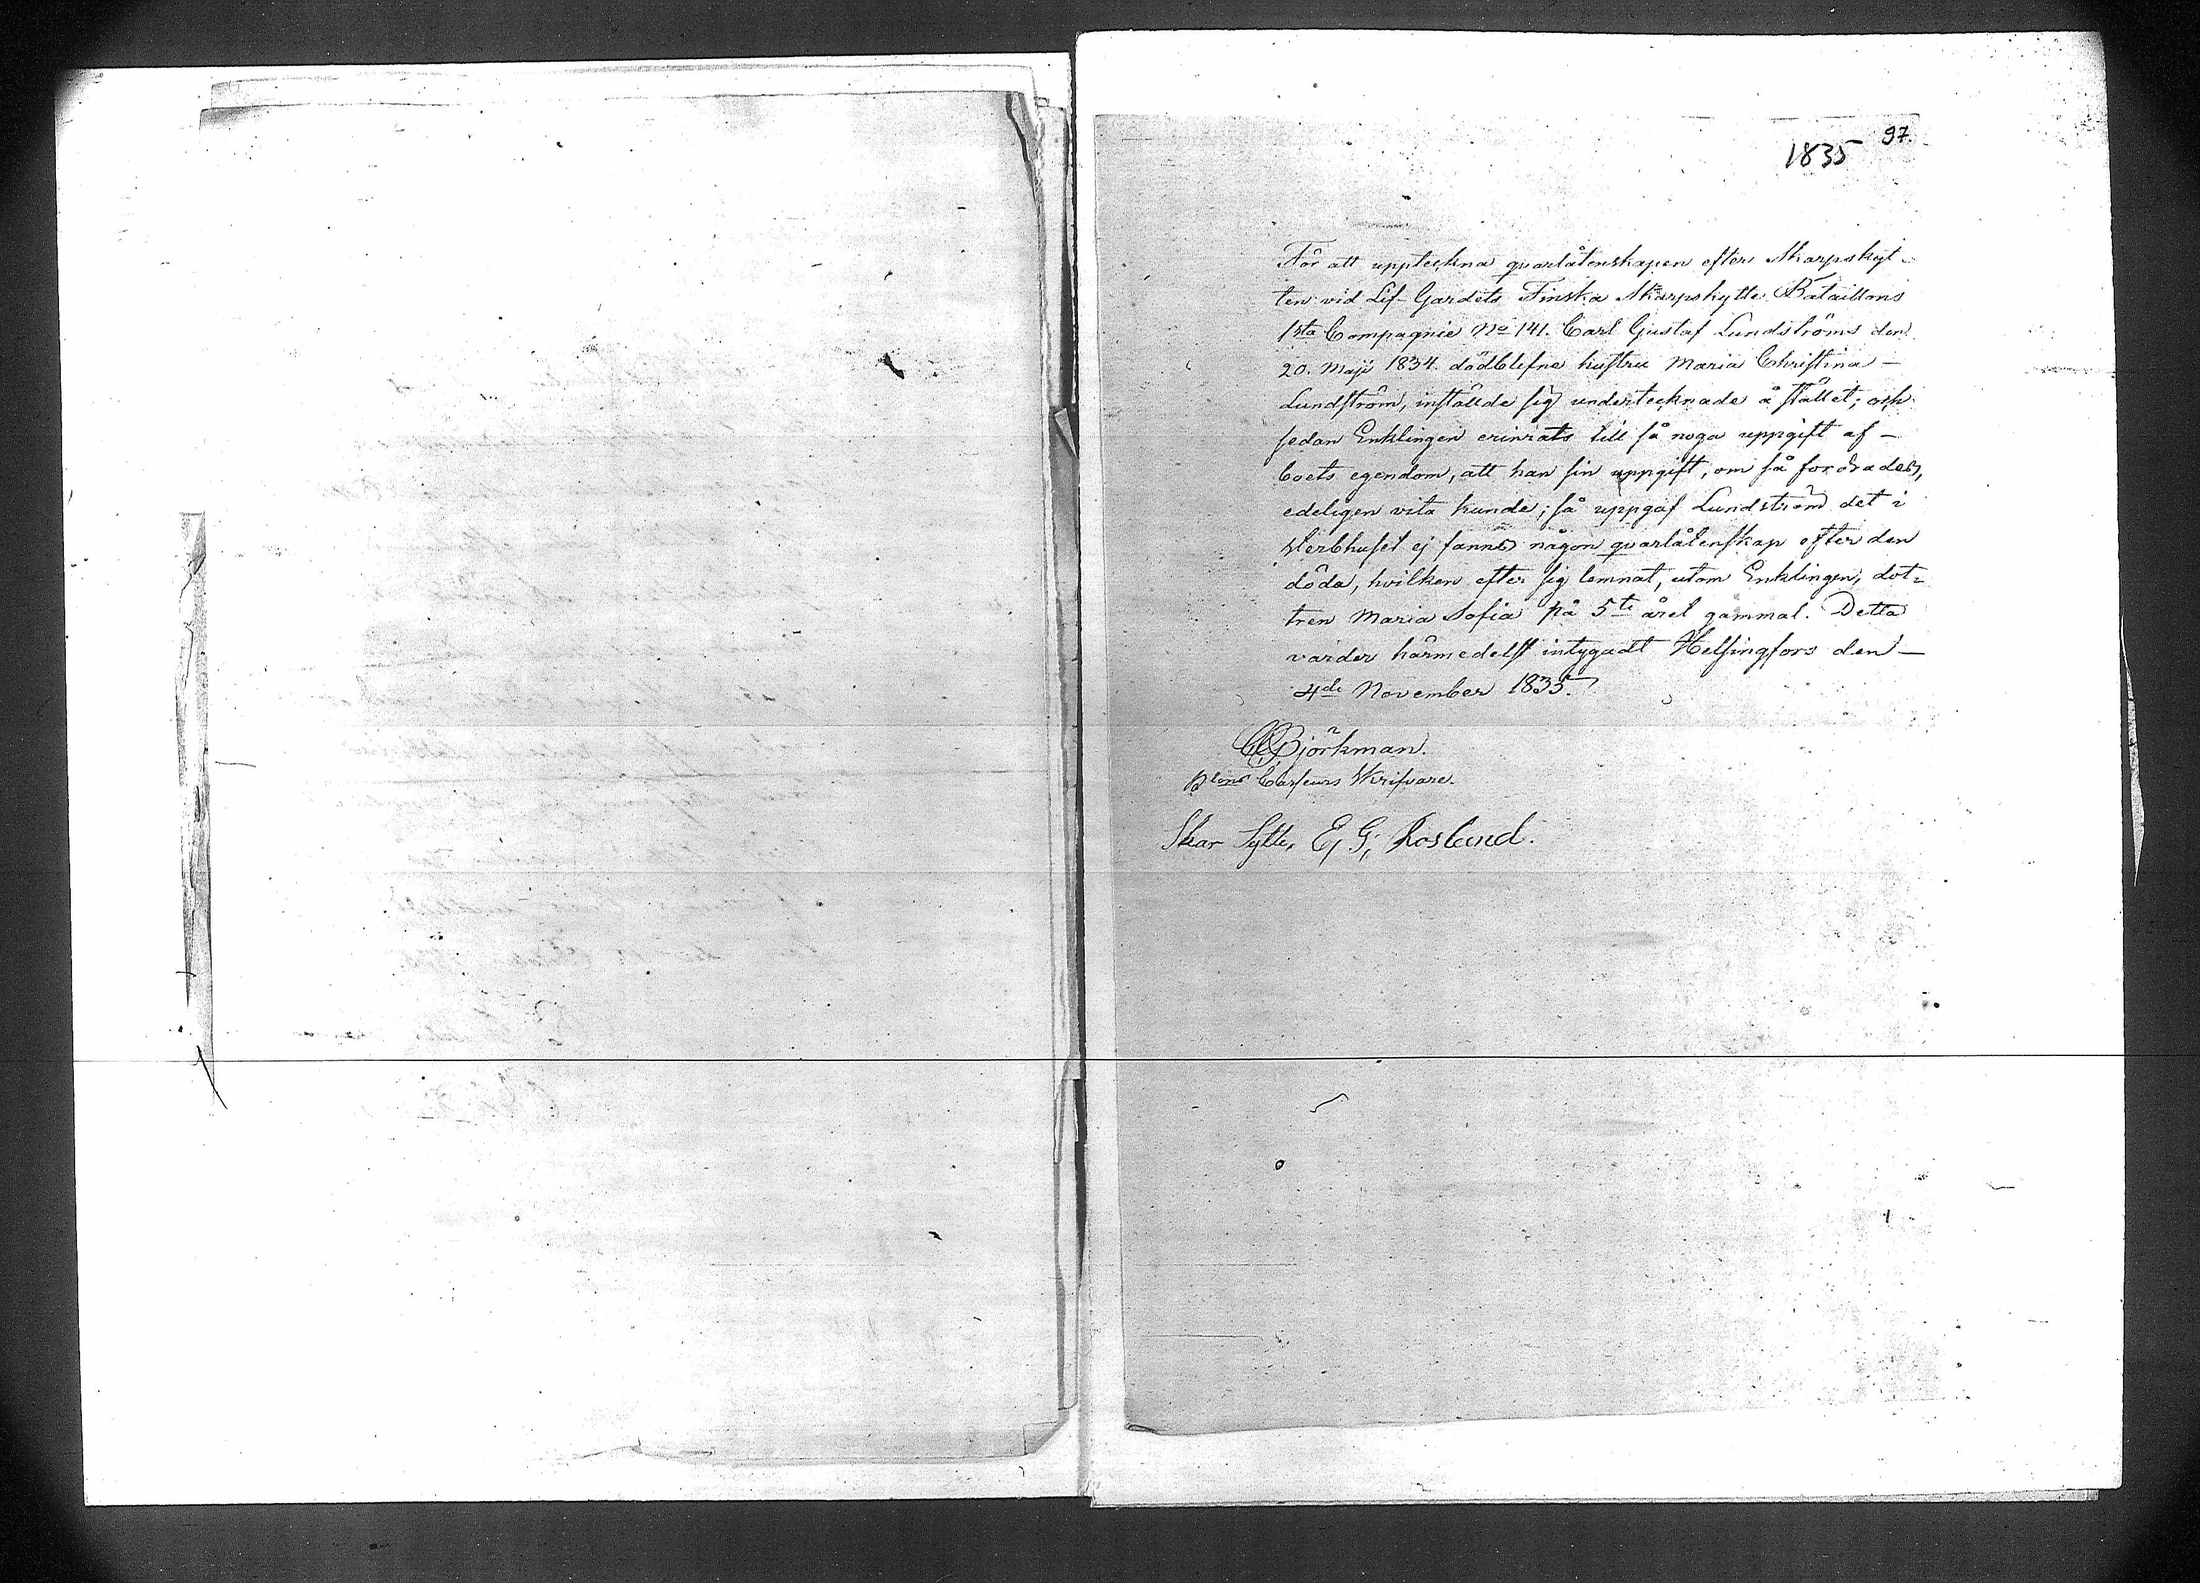 97.
1835
För att uppteckna quarlåtenskapen efter Skarpskyt-
ten vid Lif-Gardets Finska Skarpskytte Bataillons
1sta Compagnie No 141. Carl Gustaf Lundströms den
20. Maji 1834. dödblefne hustru Maria Christina –
Lundström, instälde sig undertecknade å stället; och
sedan Enklingen erinrats till så noga uppgift af –
boets egendom, att han sin uppgift, om så fordrades,
edeligen vita kunde; så uppgaf Lundström det i
sterbhuset ej fanns någon quarlåtenskap efter den
döda, hvilken efter sig lemnat, utom Enklingen, dot-
tren Maria Sofia på 5te året gammal. Detta
varder härmedelst intygadt Helsingfors den –
4de November 1835.
Björkman.
Skrifvare.
Skar Sytte, E, G; Roslund.